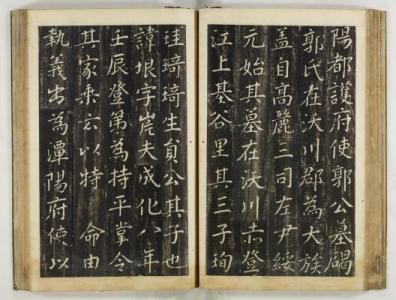 陽都護府使郭公墓碣
郭氏在沃川郡為大族
盖自高麗三司左尹綏
元始其墓在沃川赤登
江上基谷里其三子珣
珪琦琦生貟公其子也
諱垠字岸夫成化八年
壬辰登第為持平掌令
其家乘云以特 命由
執義出為潭陽府使以